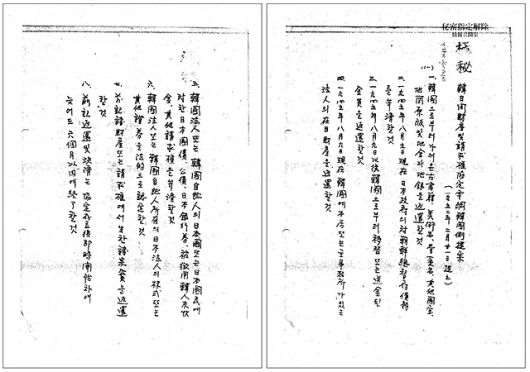 秘密指定解除
情報公開室
極秘
韓日間財産 및 請求權協定要綱韓國側提案
(一九五二. 二月二十一日 提案)
(一)
一. 韓國으로부터 가져온 古書籍, 美術品, 骨董品, 其他國宝,
地図原版 및 地金과 地銀을 返還할 것
二. 一九四五年 八月九日 現在 日本政府의 対朝鮮總督府債務
를 弁済할 것
三. 一九四五年 八月九日 以後 韓國으로부터 移替 또는 送金된
金員을 返還할 것
四. 一九四五年 八月九日 現在 韓國에 本店 또는 主事務所가 있는
法人의 在日財産을 返還할 것
五. 韓國法人 또는 韓國自然人의 日本國 또는 日本國民에
対한 日本國債, 公債, 日本銀行券, 被徵用韓人未収
金, 其他請求權을 弁済할 것
六. 韓國法人 또는 韓國自然人 所有의 日本法人의 株式 또는
其他証券을 法的으로 認定할 것
七. 前記諸財産 또는 請求權에서 生한 諸果實을 返還
할 것
八. 前記返還 및 決済는 協定成立後 即時 開始하여
늦어도 六個月以內에 終了할 것